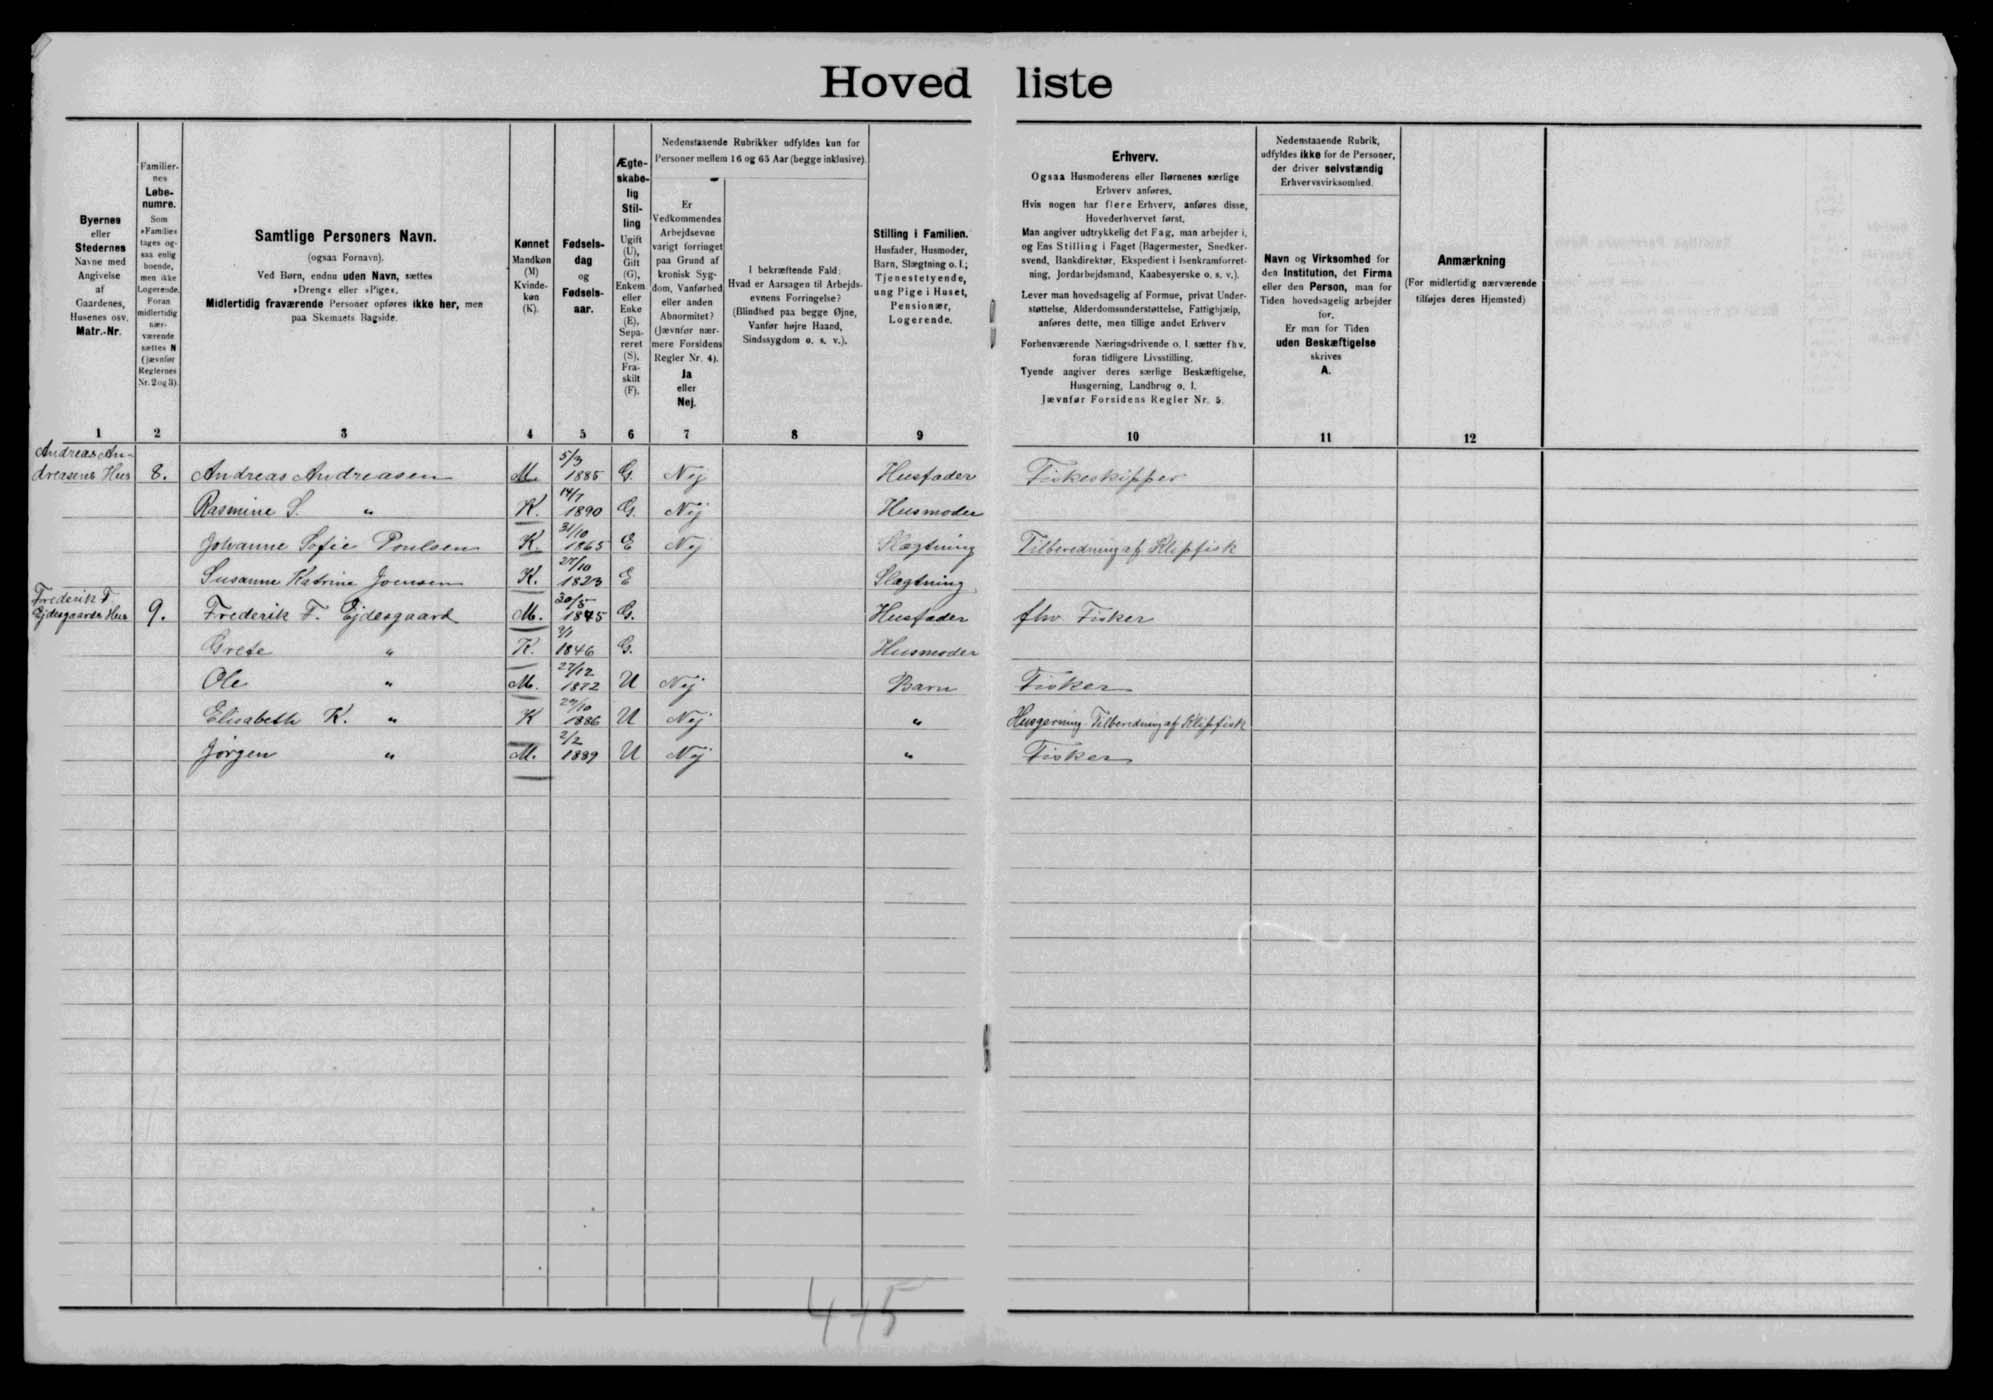 Hovedliste
Byernes
eller
Stedernes
Navne med
Angivelse
af
Gaardenes,
Husenes osv.
Matr.-Nr.
Familier-
nes
Løbe-
numre.
Som
»Familie«
tages og-
saa enlig
boende,
men ikke
Logerende.
Foran
midlertidig
nær-
værende
sættes N
(jævnfør
Reglernes
Nr. 2 og 3).
Samtlige Personers Navn.
(ogsaa Fornavn).
Ved Børn, endnu uden Navn, sættes
»Dreng« eller »Pige«.
Midlertidig fraværende Personer opføres ikke her, men
paa Skemaets Bagside.
Kønnet
Mandkøn
(M)
Kvinde-
køn
(K).
Fødsels-
dag
og
Fødsels-
aar.
Ægte-
skabe-
lig
Stil-
ling
Ugift
(U),
Gift
(G),
Enkem.
eller
Enke
(E),
Sepa-
reret
(S),
Fra-
skilt
(F).
Nedenstaaende Rubrikker udfyldes kun for
Personer mellem 16 og 65 Aar (begge inklusive).
Er
Vedkommendes
Arbejdsevne
varigt forringet
paa Grund af
kronisk Syg-
dom, Vanførhed
eller anden
Abnormitet?
(Jævnfør nær-
mere Forsidens
Regler Nr. 4).
Ja
eller
Nej.
I bekræftende Fald:
Hvad er Aarsagen til Arbejds-
evnens Forringelse?
(Blindhed paa begge Øjne,
Vanfør højre Haand,
Sindssygdom o. s. v.).
Stilling i Familien.
Husfader, Husmoder,
Barn, Slægtning o. l.;
Tjenestetyende,
ung Pige i Huset,
Pensionær,
Logerende.
Erhverv.
Ogsaa Husmoderens eller Børnenes særlige
Erhverv anføres.
Hvis nogen har flere Erhverv, anføres disse,
Hovederhvervet først.
Man angiver udtrykkelig det Fag, man arbejder i,
og Ens Stilling i Faget (Bagermester, Snedker-
svend, Bankdirektør, Ekspedient i Isenkramforret-
ning, Jordarbejdsmand, Kaabesyerske o. s. v.).
Lever man hovedsagelig af Formue, privat Under-
støttelse, Alderdomsunderstøttelse, Fattighjælp,
anføres dette, men tillige andet Erhverv
Forhenværende Næringsdrivende o. l. sætter fhv.
foran tidligere Livsstilling.
Tyende angiver deres særlige Beskæftigelse,
Husgerning, Landbrug o. l.
Jævnfør Forsidens Regler Nr. 5.
Nedenstaaende Rubrik,
udfyldes ikke for de Personer,
der driver selvstændig
Erhvervsvirksomhed.
Navn og Virksomhed for
den Institution, det Firma
eller den Person, man for
Tiden hovedsagelig arbejder
for.
Er man for Tiden
uden Beskæftigelse
skrives
A.
Anmærkning
(For midlertidig nærværende
tilføjes deres Hjemsted)
1 2 3 4 5 6 7 8 9 10 11 12
Andreas An-
dreasens Hus 8. Andreas Andreasen M. 5/3 1885 G. Nej Husfader Fiskeskipper
Rasmine S. " K. 14/7 1890 G. Nej Husmoder
Johanne Sofie Poulsen K. 31/10 1865 E Nej Slægtning Tilberedning af Klipfisk
Susanne Katrine Joensen K. 27/10 1823 E Slægtning
Frederik F.
Ejdesgaards Hus 9. Frederik F. Ejdesgaard M. 30/5 1845 G. Husfader fhv. Fisker
Grete " K. 2/1 1846 G. Husmoder
Ole " M. 27/12 1872 U Nej Barn Fisker
Elisabeth K. " K 29/10 1886 U Nej " Husgerning. Tilberedning af Klipfisk
Jørgen " M. 2/2 1889 U Nej " Fisker
4+5